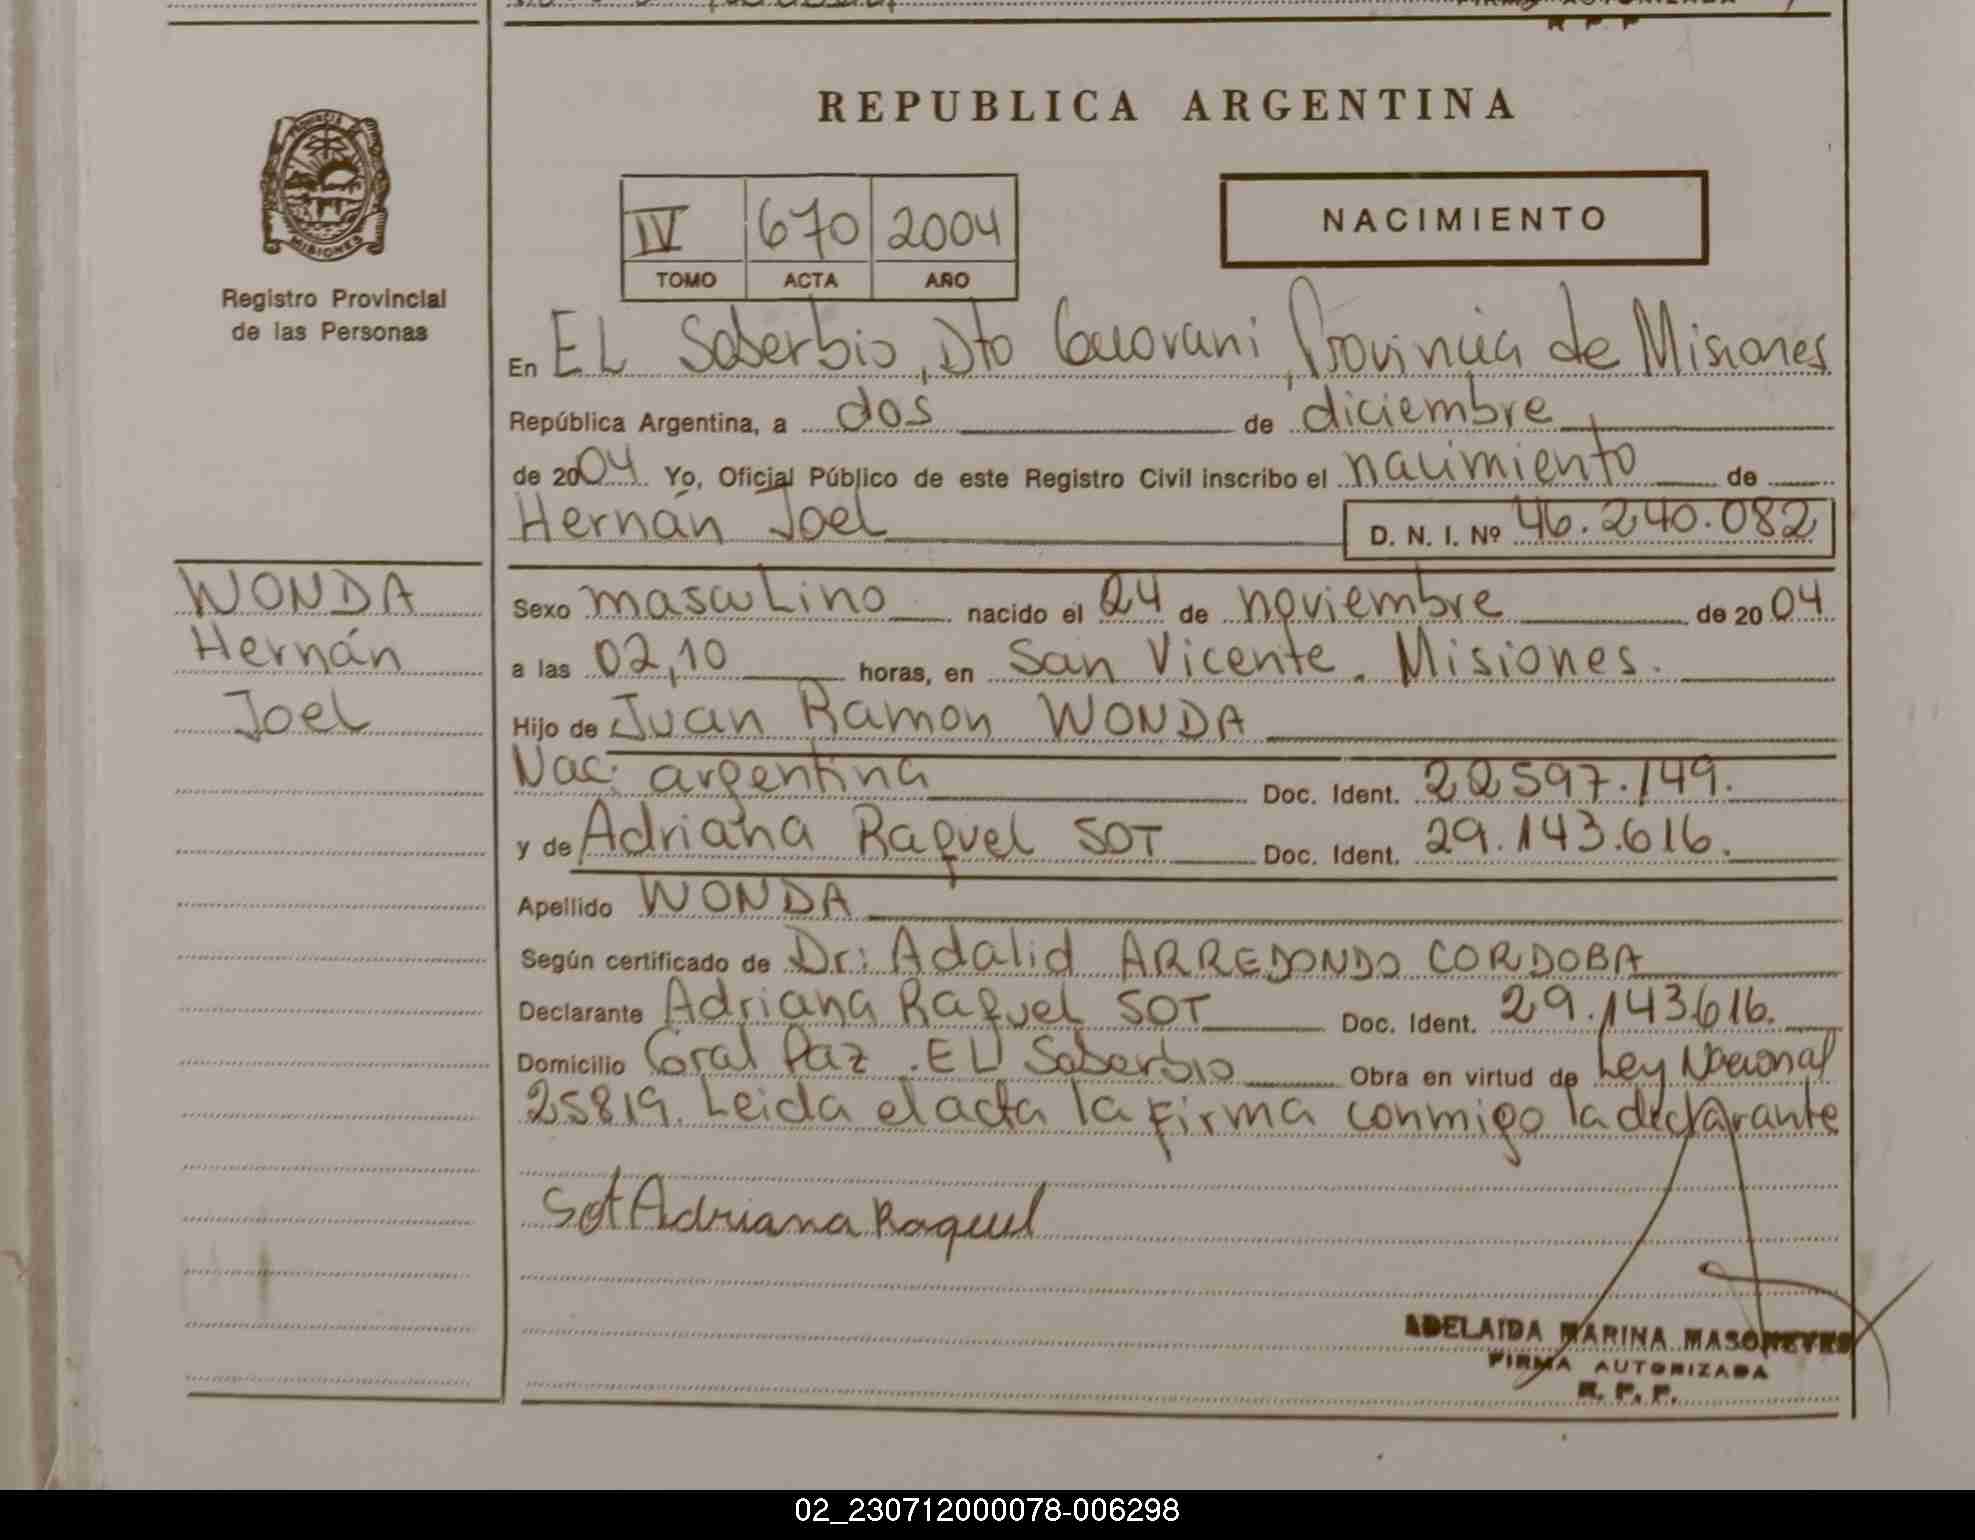 REPUBLICA ARGENTINA
PROVINCIA DE
MISIONES
Registro Provincial
de las Personas
IV 670 2004
TOMO ACTA AÑO
NACIMIENTO
En EL Soberbio, Dto Guarani, Provincia de Misiones
República Argentina, a dos de diciembre
de 2004 Yo, Oficial Público de este Registro Civil inscribo el nacimiento de
Hernán Joel D. N. I. Nº 46.240.082
WONDA
Hernán
Joel
Sexo masculino nacido el 24 de noviembre de 2004
a las 02,10 horas, en San Vicente. Misiones.
Hijo de Juan Ramon WONDA
Nac: argentina Doc. Ident. 22597.149.
y de Adriana Raquel SOT Doc. Ident. 29.143.616.
Apellido WONDA
Según certificado de Dr: Adalid ARREDONDO CORDOBA
Declarante Adriana Raquel SOT Doc. Ident. 29.143616.
Domicilio Gral Paz. EL Soberbio Obra en virtud de Ley Nacional
25819. Leida el acta la firma conmigo la declarante
Sot Adriana Raquel
ADELAIDA MARINA
FIRMA AUTORIZADA
R. P. P.
02_230712000078-006298